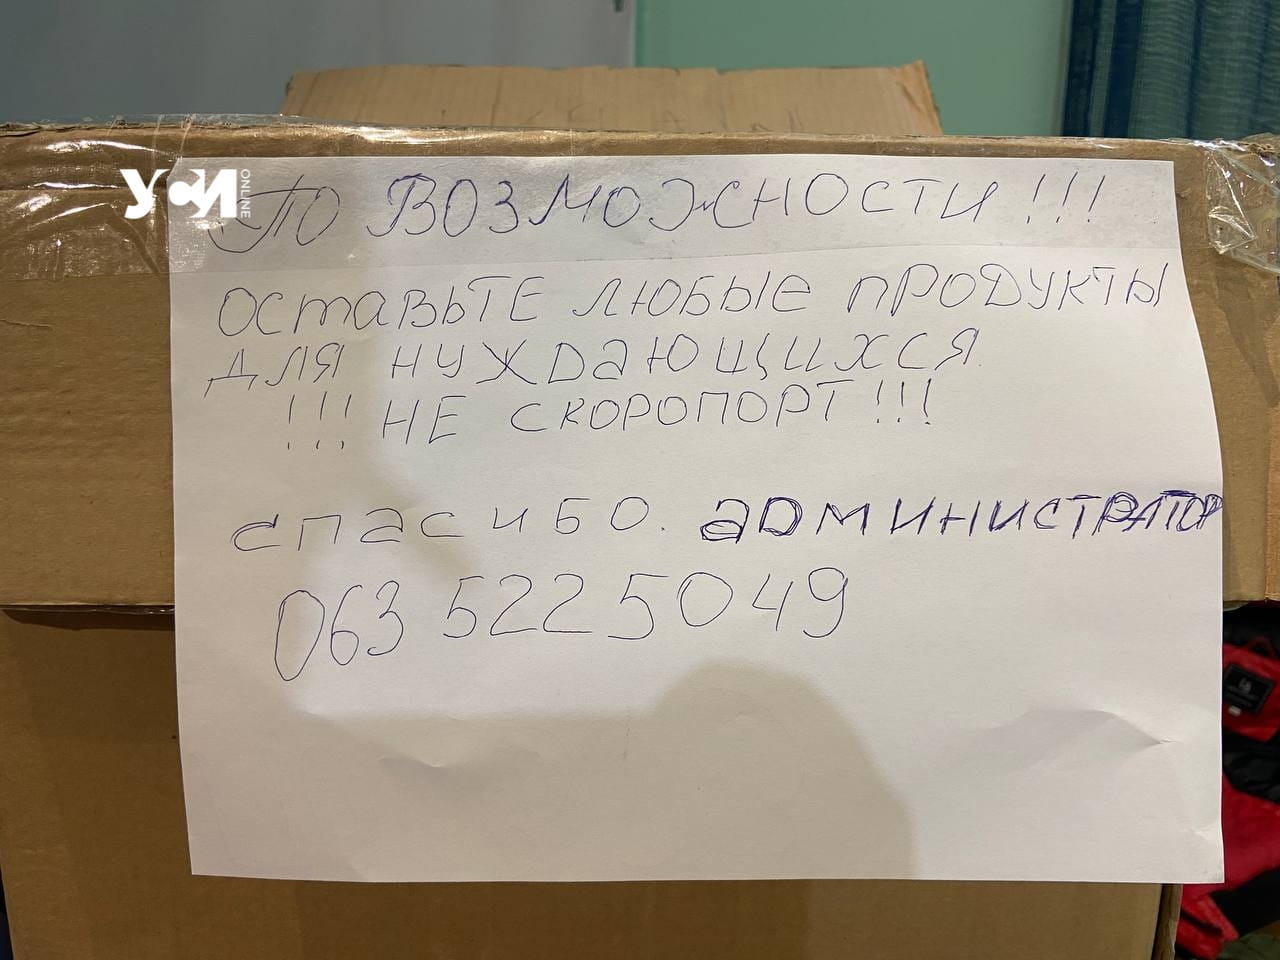 УСИ
ONLINE
ПО ВОЗМОЖНОСТИ!!!
ОСТАВЬТЕ ЛЮБЫЕ ПРОДУКТЫ
ДЛЯ НУЖДАЮЩИХСЯ
!!! НЕ СКОРОПОРТ!!!
СПАСИБО. АДМИНИСТРАТОР
063 522 50 49